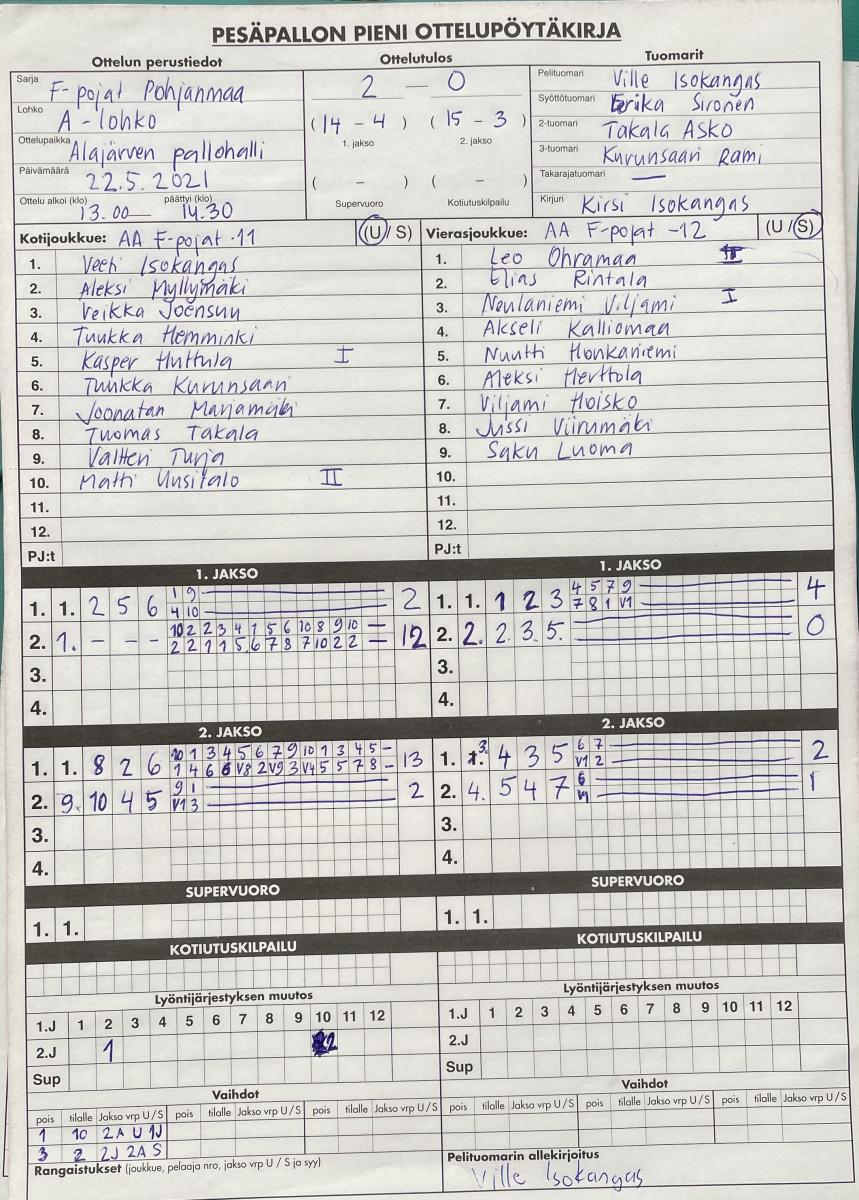 PESÄPALLON PIENI OTTELUPÖYTÄKIRJA
Ottelun perustiedot
Ottelutulos
Tuomarit
Sarja F-pojat Pohjanmaa
Lohko A-lohko
Ottelupaikka Alajärven pallohalli
Päivämäärä 22.5.2021
Ottelu alkoi (klo) päättyi (klo)
13.00 — 14.30
2 — 0
(14 - 4) (15 - 3)
1. jakso 2. jakso
( - ) ( - )
Supervuoro Kotiutuskilpailu
Pelituomari Ville Isokangas
Syöttötuomari Erika Sironen
2-tuomari Takala Asko
3-tuomari Kurunsaari Rami
Takarajatuomari —
Kirjuri Kirsi Isokangas
Kotijoukkue: AA F-pojat -11 (U/S)
1. Veeti Isokangas
2. Aleksi Myllymäki
3. Veikka Joensuu
4. Tuukka Hemminki
5. Kasper Huttula I
6. Tuukka Kurunsaari
7. Joonatan Marjamäki
8. Tuomas Takala
9. Valtteri Turja
10. Matti Uusitalo II
11.
12.
PJ:t
Vierasjoukkue: AA F-pojat -12 (U/S)
1. Leo Ohramaa
2. Elias Rintala
3. Neulaniemi Viljami I
4. Akseli Kalliomaa
5. Nuutti Honkaniemi
6. Aleksi Herttola
7. Viljami Hoisko
8. Jussi Viirumäki
9. Saku Luoma
10.
11.
12.
PJ:t
1. JAKSO
1. 1. 2 5 6 1 9 2
4 10
2. 1. - - - 10 2 2 3 4 1 5 6 10 8 9 10 — 12
2 2 1 1 5 6 7 8 7 10 2 2 —
3.
4.
1. JAKSO
1. 1. 1 2 3 4 5 7 9 4
7 8 1 V1
2. 2. 2. 3. 5. 0
3.
4.
2. JAKSO
1. 1. 8 2 6 10 1 3 4 5 6 7 9 10 1 3 4 5 - 13
1 4 6 6 V8 2 V9 3 V4 5 5 7 8 -
2. 9. 10 4 5 9 1 2
V1 3
3.
4.
2. JAKSO
1. 3. 4 3 5 6 7 2
V1 2
2. 4. 5 4 7 6 1
3.
4.
SUPERVUORO
1. 1.
SUPERVUORO
1. 1.
KOTIUTUSKILPAILU
KOTIUTUSKILPAILU
Lyöntijärjestyksen muutos
1.J 1 2 3 4 5 6 7 8 9 10 11 12
2.J 1
Sup
Lyöntijärjestyksen muutos
1.J 1 2 3 4 5 6 7 8 9 10 11 12
2.J
Sup
Vaihdot
pois tilalle Jakso vrp U/S pois tilalle Jakso vrp U/S pois tilalle Jakso vrp U/S
1 10 2A U 1J
3 2 2J 2A S
Vaihdot
pois tilalle Jakso vrp U/S pois tilalle Jakso vrp U/S pois tilalle Jakso vrp U/S
Rangaistukset (joukkue, pelaaja nro, jakso vrp U / S ja syy)
Pelituomarin allekirjoitus
Ville Isokangas